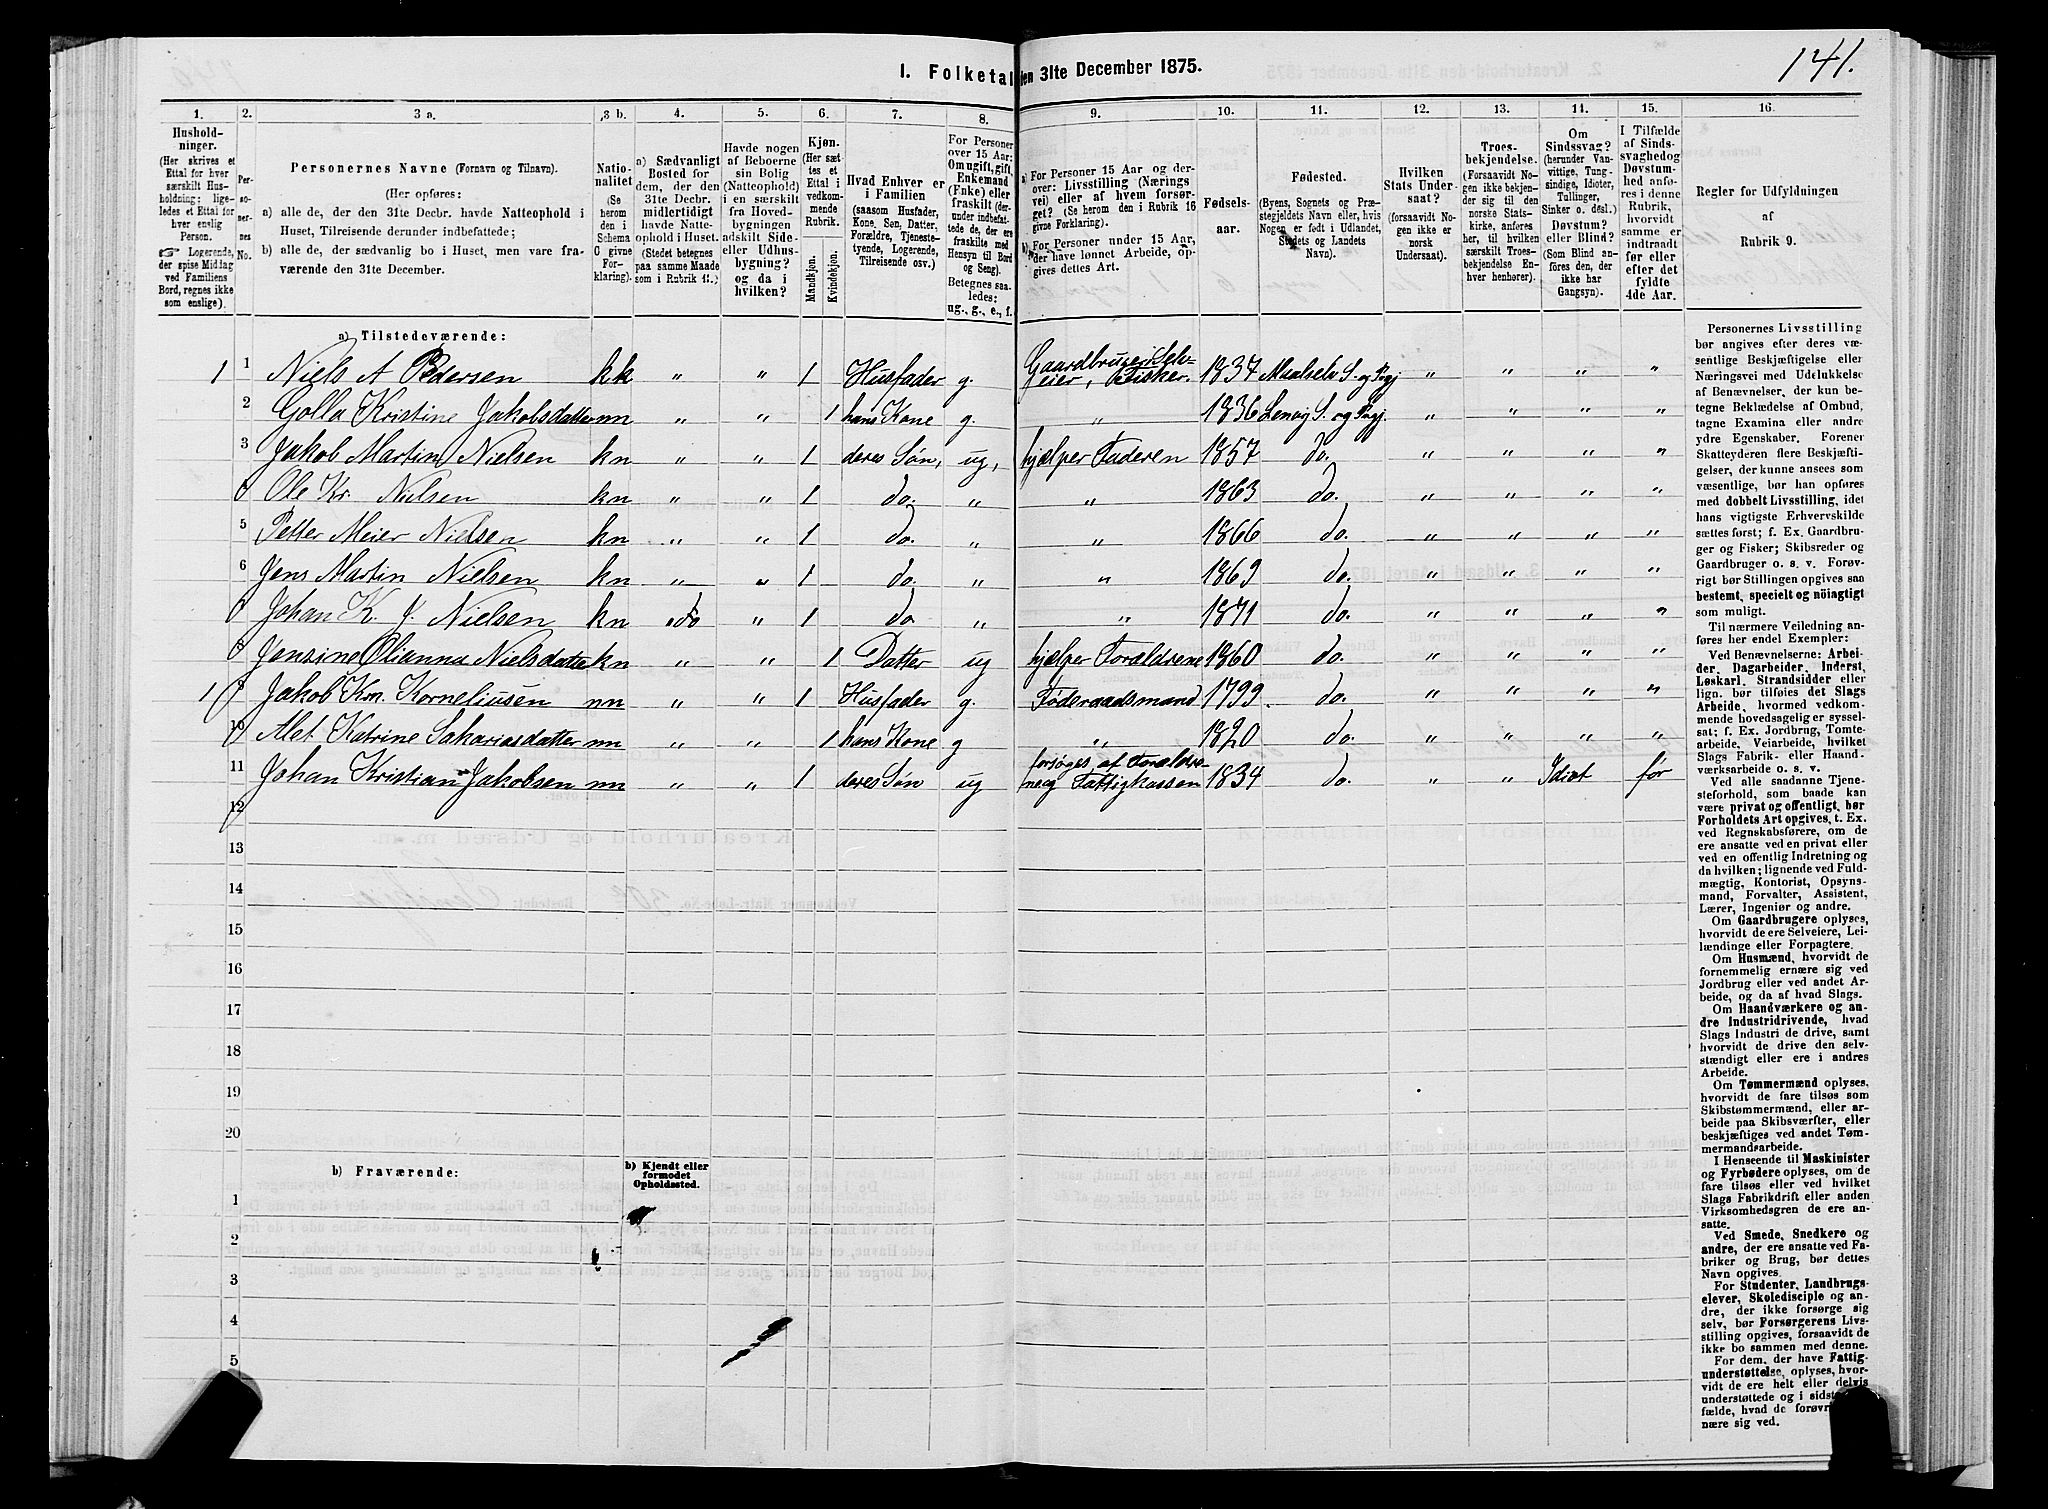 141.
I. Folketal den 31te December 1875.
1. 2. 3 a. 3 b. 4. 5. 6. 7. 8. 9. 10. 11. 12. 13. 14. 15. 16.
Hushold-
ninger.
(Her skrives et
Ettal for hver
særskilt Hus-
holdning: lige-
ledes et Ettal for
hver enslig
Person.
☞ Logerende,
der spise Middag
ved Familiens
Bord, regnes ikke
som enslige).
Per-
so-
ner-
nes
No.
Personernes Navne (Fornavn og Tilnavn).
(Her opføres:
a) alle de, der den 31te Decbr. havde Natteophold i
Huset, Tilreisende derunder indbefattede;
b) alle de, der sædvanlig bo i Huset, men vare fra-
værende den 31te December.
Natio-
nalitet
(Se
herom
den i
Schema
C givne
For-
klaring).
a) Sædvanligt
Bosted for
dem, der den
31te Decbr.
midlertidigt
havde Natte-
ophold i Huset.
(Stedet betegnes
paa samme Maade
som i Rubrik 11.)
Havde nogen
af Beboerne
sin Bolig
(Natteophold)
i en særskilt
fra Hoved-
bygningen
adskilt Side-
eller Udhus-
bygning?
og da i
hvilken?
Kjøn.
(Her sæt-
tes et
Ettal i
vedkom-
mende
Rubrik.
Mandkjøn.
Kvindekjøn.
Hvad Enhver er
i Familien
(saasom Husfader,
Kone, Søn, Datter,
Forældre, Tjeneste-
tyende, Logerende,
Tilreisende osv.)
For Personer
over 15 Aar:
Om ugift, gift,
Enkemand
(Enke) eller
fraskilt (der-
under indbefat-
tede de, der ere
fraskilte med
Hensyn til Bord
og Seng).
Betegnes saa-
ledes:
ug., g., e., f.
a) For Personer 15 Aar og der-
over: Livsstilling (Nærings
vei) eller af hvem forsør-
get? (Se herom den i Rubrik 16
givne Forklaring).
b) For Personer under 15 Aar,
der have lønnet Arbeide, op-
gives dettes Art.
Fødsels-
aar.
Fødested.
(Byens, Sognets og Præ-
stegjeldets Navn eller, hvis
Nogen er født i Udlandet,
Stedets og Landets
Navn).
Hvilken
Stats Under-
saat?
(forsaavidt No-
gen ikke er
norsk
Undersaat).
Troes-
bekjendelse.
(Forsaavidt No-
gen ikke bekjen-
der sig til den
norske Stats-
kirke, anføres
her, til hvilken
særskilt Troes-
bekjendelse En-
hver henhører).
Om
Sindssvag?
(herunder Van-
vittige, Tung-
sindige, Idioter,
Tullinger,
Sinker o. desl.)
Døvstum?
eller Blind?
(Som Blind an-
føres den, der
ikke har
Gangsyn).
I Tilfælde
af Sinds-
svaghed og
Døvstum-
hed anfø-
res i denne
Rubrik,
hvorvidt
samme er
indtraadt
før eller
efter det
fyldte
4de Aar.
Regler for Udfyldningen
af
Rubrik 9.
a) Tilstedeværende:
1 1 Niels A Pedersen kk „ „ 1 Husfader g. Gaardbruger Selv-
eier, Fisker. 1834 Maalselv S. og Pgj „ „ „ „
2 Golla Kristine Jakobsdatter nn „ „ 1 hans Kone g. „ 1836 Lenvig S. og Pgj. „ „ „ „
3 Jakob Martin Nielsen kn „ „ 1 deres Søn, ug, hjælper Faderen 1857 do. „ „ „ „
Ole Kr. Nielsen kn „ „ 1 do. „ „ 1863 do. „ „ „ „
5 Petter Meier Nielsen kn „ „ 1 do. „ „ 1866 do. „ „ „ „
6 Jens Martin Nielsen kn „ „ 1 do. „ „ 1869 do. „ „ „ „
Johan K. J. Nielsen kn do „ 1 do „ „ 1871 do. „ „ „ „
8 Jensine Olianna Nielsdatter kn „ „ 1 Datter ug hjælper Forældrene 1860 do. „ „ „ „
1 9 Jakob Krn. Korneliusen nn „ „ 1 Husfader g. Føderaadsmand 1799. do. „ „ „ „
10 Alet Katrine Sakariasdatter nn „ „ 1 hans Kone g „ 1820 do. „ „ „ „
11 Johan Kristian Jakobsen nn „ „ 1 deres Søn ug forsørges af Forældre-
ne og Fattigkassen 1834 do. „ „ Idiot før
12
13
14
15
16
17
18
19
20
b) Fraværende:
b) Kjendt eller
formodet
Opholdssted.
1
2
3
4
5
Personernes Livsstilling
bør angives efter deres væ-
sentlige Beskjæftigelse eller
Næringsvei med Udelukkelse
af Benævnelser, der kun be-
tegne Beklædelse af Ombud,
tagne Examina eller andre
ydre Egenskaber. Forener
Skatteyderen flere Beskjæfti-
gelser, der kunne ansees som
væsentlige, bør han opføres
med dobbelt Livsstilling, idet
hans vigtigste Erhvervskilde
sættes først; f. Ex. Gaardbru-
ger og Fisker; Skibsreder og
Gaardbruger o. s. v. Forøv-
rigt bør Stillingen opgives saa
bestemt, specielt og nöiagtigt
som muligt.
Til nærmere Veiledning an-
føres her endel Exempler:
Ved Benævnelserne: Arbei-
der, Dagarbeider, Inderst,
Løskarl, Strandsidder eller
lign. bør tilføies det Slags
Arbeide, hvormed vedkom-
mende hovedsagelig er syssel-
sat; f. Ex. Jordbrug, Tomte-
arbeide, Veiarbeide, hvilket
Slags Fabrik- eller Haand-
værksarbeide o. s. v.
Ved alle saadanne Tjene-
steforhold, som baade kan
være privat og offentligt, bør
Forholdets Art opgives, t. Ex.
ved Regnskabsførere, om de
ere ansatte ved en privat eller
ved en offentlig Indretning og
da hvilken; lignende ved Fuld-
mægtig, Kontorist, Opsyns-
mand, Forvalter, Assistent,
Lærer, Ingeniør og andre.
Om Gaardbrugere oplyses,
hvorvidt de ere Selveiere, Lei-
lændinge eller Forpagtere.
Om Husmænd, hvorvidt de
fornemmelig ernære sig ved
Jordbrug eller ved andet Ar-
beide, og da af hvad Slags.
Om Haandværkere og an-
dre Industridrivende, hvad
Slags Industri de drive, samt
hvorvidt de drive den selv-
stændigt eller ere i andres
Arbeide.
Om Tømmermænd oplyses,
hvorvidt de fare tilsøs som
Skibstømmermænd, eller ar-
beide paa Skibsværfter, eller
beskjæftiges ved andet Tøm-
mermandsarbeide.
I Henseende til Maskinister
og Fyrbødere oplyses, om de
fare tilsøs eller ved hvilket
Slags Fabrikdrift eller anden
Virksomhedsgren de ere an-
satte.
Ved Smede, Snedkere og
andre, der ere ansatte ved Fa-
briker og Brug, bør dettes
Navn opgives.
For Studenter, Landbrugs-
elever, Skoledisciple og an-
dre, der ikke forsørge sig
selv, bør Forsørgerens Livs-
stilling opgives, forsaavidt de
ikke bo sammen med denne.
For dem, der have Fattig-
understøttelse, oplyses, hvor-
vidt de ere helt eller delvis
understøttede og i sidst
fælde, hvad de forøvr
nære sig ved.